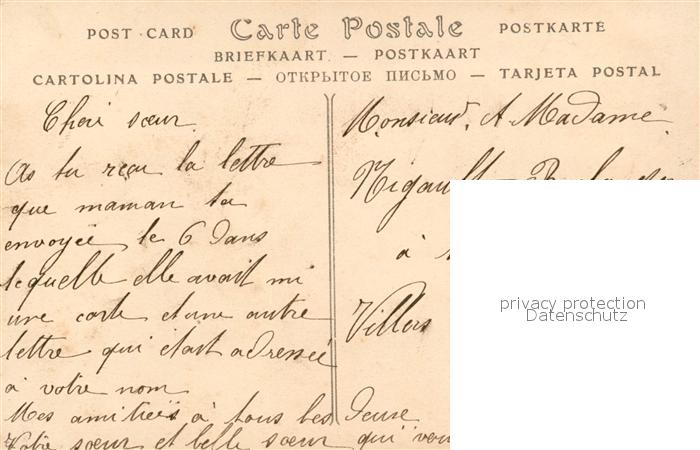 POST CARD Carte Postale POSTKARTE
BRIEFKAART — POSTKAART
CARTOLINA POSTALE — ОТКРЫТОЕ ПИСЬМО — TARJETA POSTAL
Cheri sœur
As tu reçu la lettre
que maman ta
envoyée le 6 dans
lequelle elle avait mi
une carte et une autre
lettre qui était adressée
à votre nom
Mes amitiées à tous les deux
Votre sœur et belle sœur qui
Monsieur, et Madame
à
Villers
privacy protection
Datenschutz